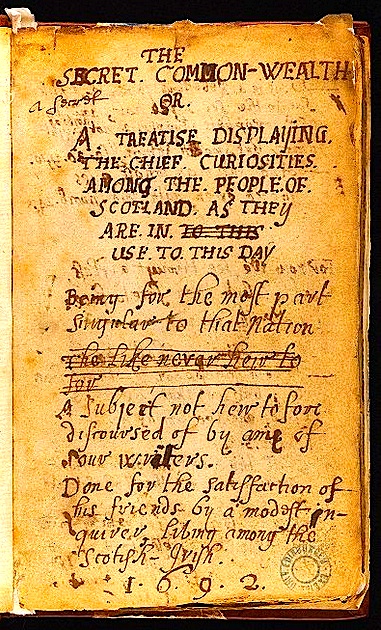 THE
SECRET. COMMON-WEALTH
a Secret OR.
A TREATISE DISPLAYING.
THE CHIEF CURIOSITIES
AMONG. THE. PEOPLE. OF.
SCOTLAND. AS THEY
ARE. IN. TO THIS
USE. TO. THIS DAY
Being for the most part
Singular to that Nation
The like never heir to
for
A Subject not heir to fore
discoursed of by any of
our writers.
Done for the satisfaction of
his friends by a modest in-
quirer, living among the
Scotish-Irish.
1. 6 9 2.